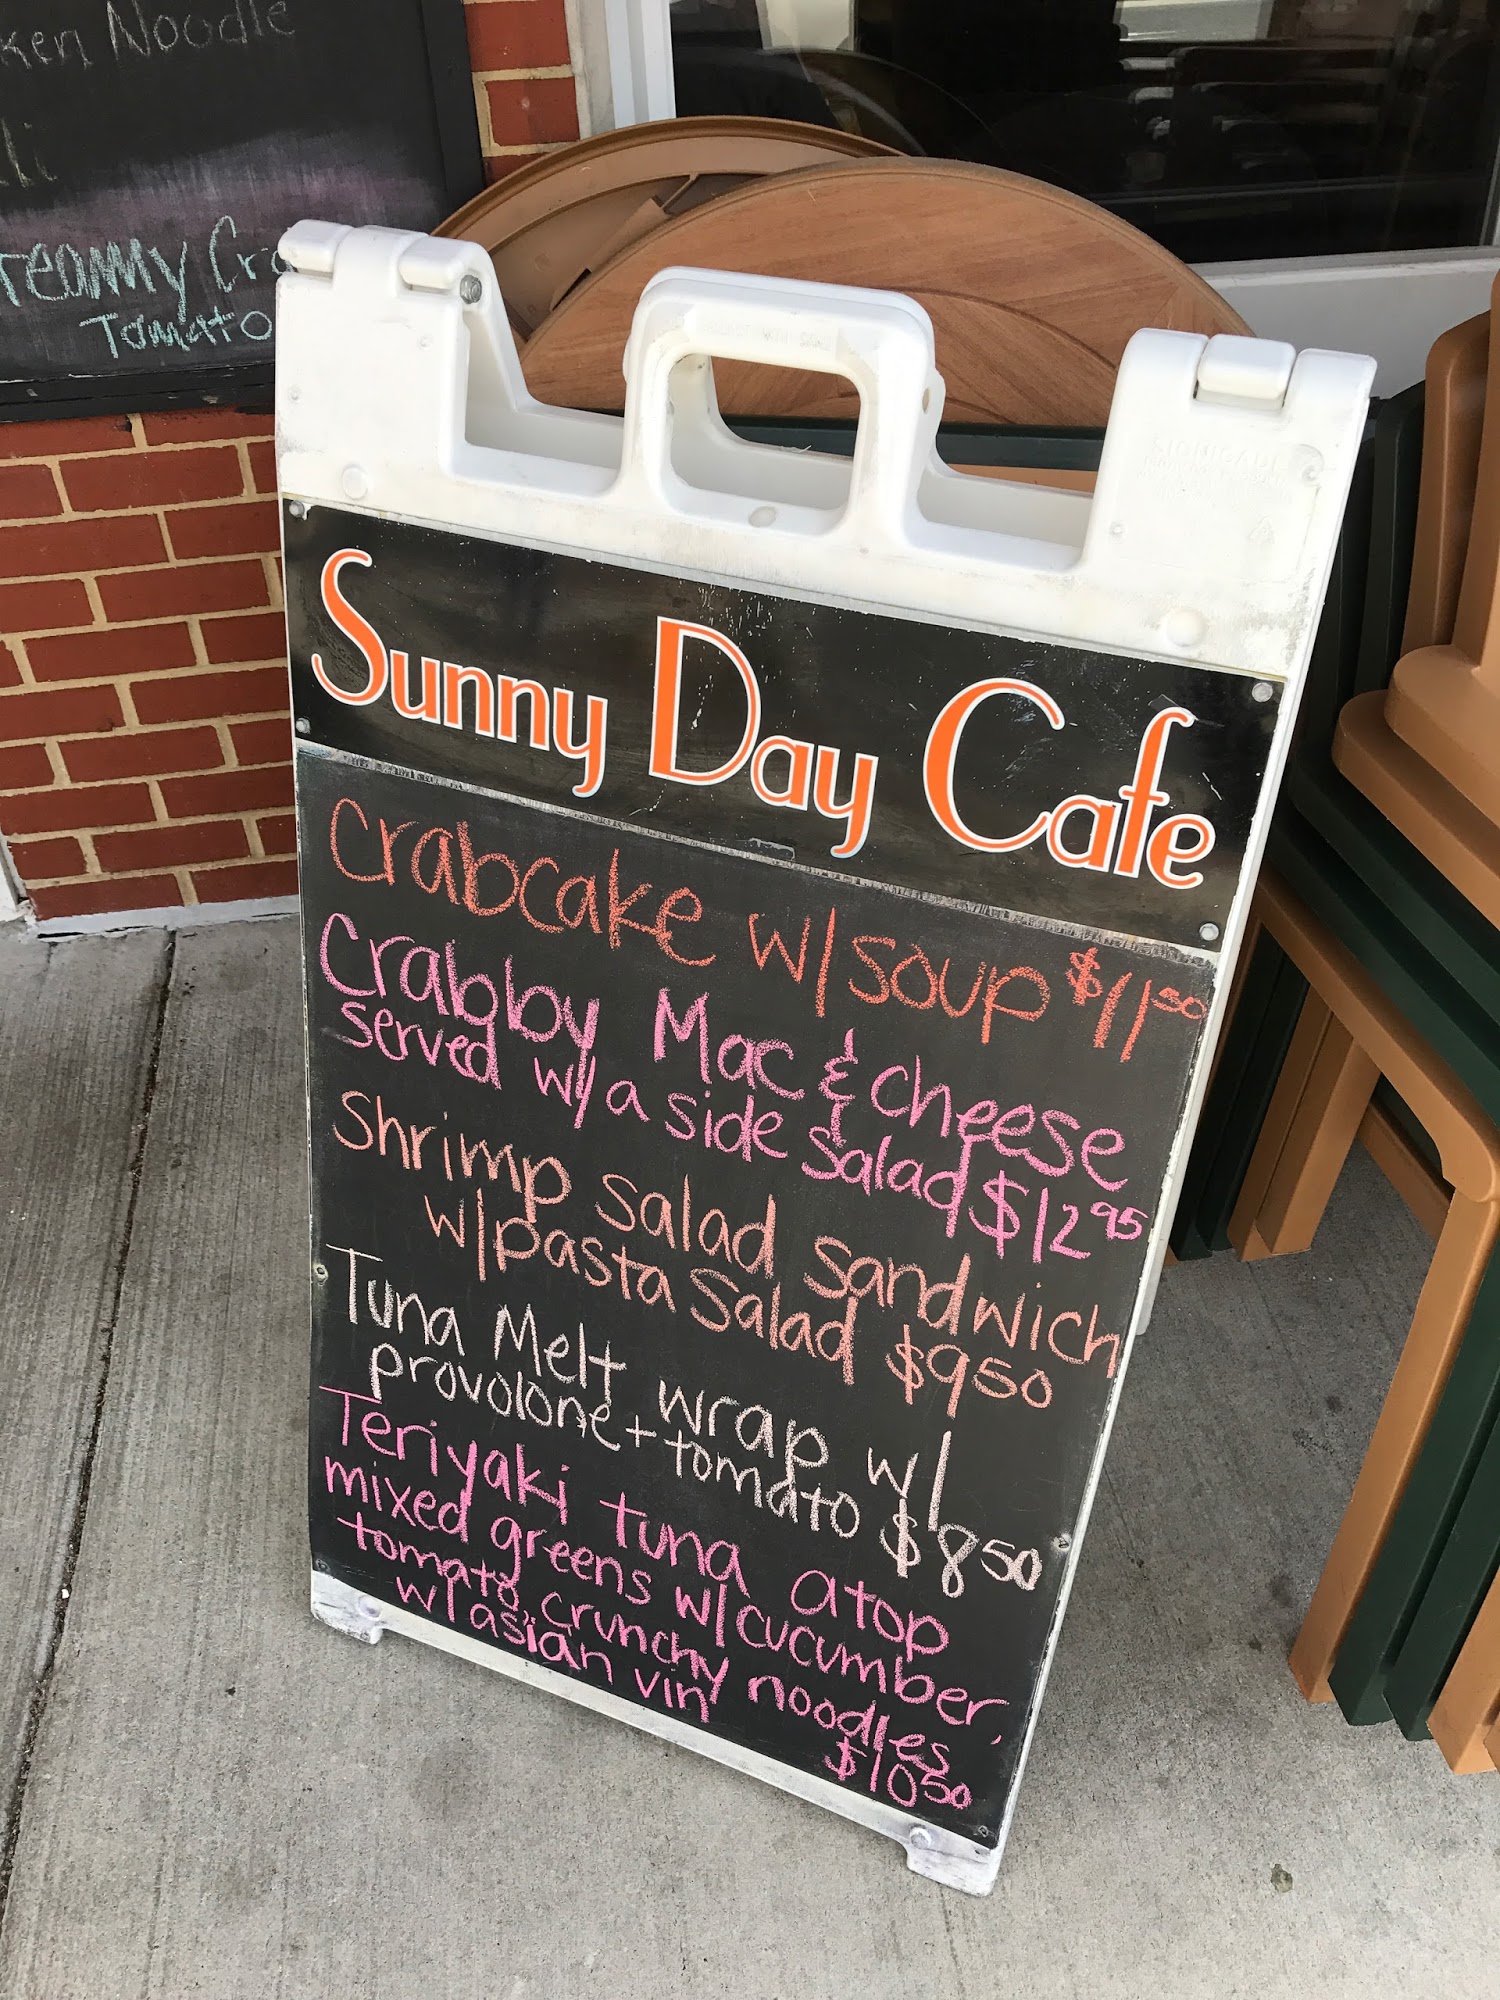 Noodle
Tomato
Sunny Day Cafe
Crabcake w/soup $11.50
Crabby Mac & cheese
served w/a side salad $12.95
Shrimp salad sandwich
w/pasta salad $9.50
Tuna Melt wrap w/
provolone + tomato $8.50
Teriyaki tuna atop
mixed greens w/cucumber,
tomato, crunchy noodles
w/asian vin $10.50